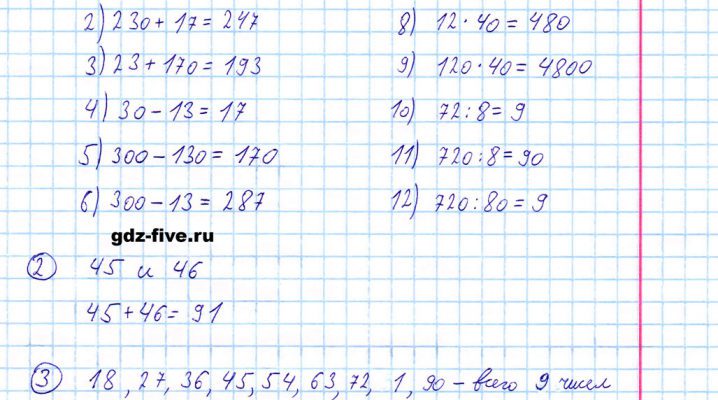 2) 230 + 17 = 247
3) 23 + 170 = 193
4) 30 - 13 = 17
5) 300 - 130 = 170
6) 300 - 13 = 287
8) 12 · 40 = 480
9) 120 · 40 = 4800
10) 72 : 8 = 9
11) 720 : 8 = 90
12) 720 : 80 = 9
gdz-five.ru
2 45 и 46
45 + 46 = 91
3 18, 27, 36, 45, 54, 63, 72, 1, 90 - всего 9 чисел